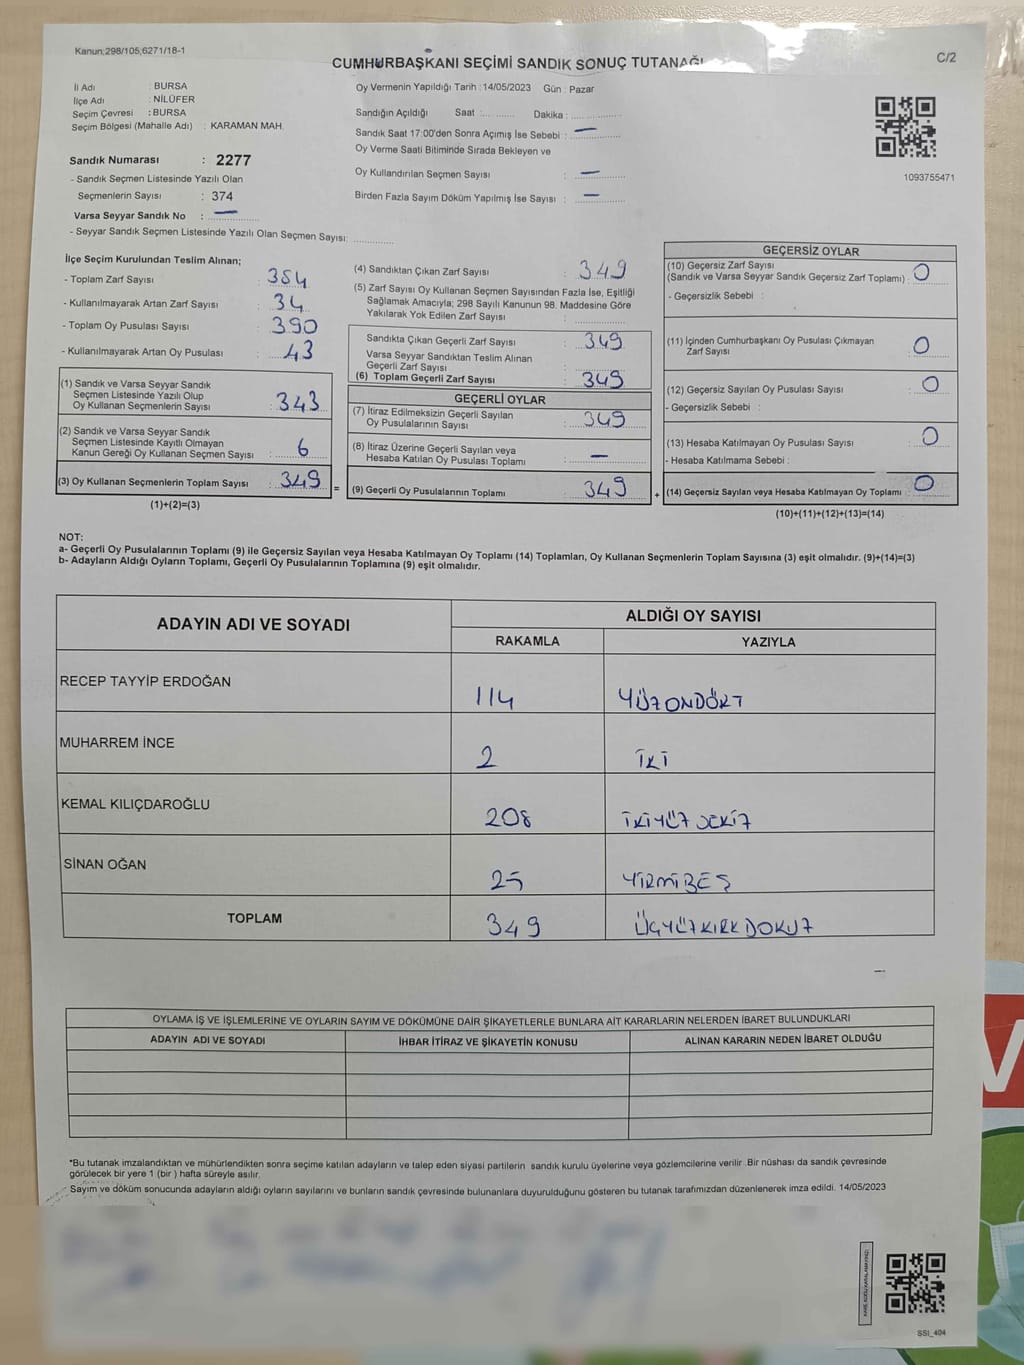 Kanun;298/105,6271/18-1
CUMHURBAŞKANI SEÇİMİ SANDIK SONUÇ TUTANAĞI
C/2
İl Adı : BURSA
İlçe Adı : NİLÜFER
Seçim Çevresi : BURSA
Seçim Bölgesi (Mahalle Adı) : KARAMAN MAH.
Sandık Numarası : 2277
- Sandık Seçmen Listesinde Yazılı Olan
Seçmenlerin Sayısı : 374
Varsa Seyyar Sandık No : —
- Seyyar Sandık Seçmen Listesinde Yazılı Olan Seçmen Sayısı:
Oy Vermenin Yapıldığı Tarih : 14/05/2023 Gün : Pazar
Sandığın Açıldığı Saat : Dakika :
Sandık Saat 17:00'den Sonra Açımış İse Sebebi : —
Oy Verme Saati Bitiminde Sırada Bekleyen ve
Oy Kullandırılan Seçmen Sayısı : —
Birden Fazla Sayım Döküm Yapılmış İse Sayısı : —
1093755471
İlçe Seçim Kurulundan Teslim Alınan;
- Toplam Zarf Sayısı : 384
- Kullanılmayarak Artan Zarf Sayısı : 34
- Toplam Oy Pusulası Sayısı : 390
- Kullanılmayarak Artan Oy Pusulası : 43
(1) Sandık ve Varsa Seyyar Sandık
Seçmen Listesinde Yazılı Olup
Oy Kullanan Seçmenlerin Sayısı : 343
(2) Sandık ve Varsa Seyyar Sandık
Seçmen Listesinde Kayıtlı Olmayan
Kanun Gereği Oy Kullanan Seçmen Sayısı : 6
(3) Oy Kullanan Seçmenlerin Toplam Sayısı : 349
(1)+(2)=(3)
=
(4) Sandıktan Çıkan Zarf Sayısı : 349
(5) Zarf Sayısı Oy Kullanan Seçmen Sayısından Fazla İse, Eşitliği
Sağlamak Amacıyla; 298 Sayılı Kanunun 98. Maddesine Göre
Yakılarak Yok Edilen Zarf Sayısı :
Sandıkta Çıkan Geçerli Zarf Sayısı : 349
Varsa Seyyar Sandıktan Teslim Alınan
Geçerli Zarf Sayısı :
(6) Toplam Geçerli Zarf Sayısı : 349
GEÇERLİ OYLAR
(7) İtiraz Edilmeksizin Geçerli Sayılan
Oy Pusulalarının Sayısı : 349
(8) İtiraz Üzerine Geçerli Sayılan veya
Hesaba Katılan Oy Pusulası Toplamı : —
(9) Geçerli Oy Pusulalarının Toplamı : 349
+
GEÇERSİZ OYLAR
(10) Geçersiz Zarf Sayısı
(Sandık ve Varsa Seyyar Sandık Geçersiz Zarf Toplamı) : 0
- Geçersizlik Sebebi :
(11) İçinden Cumhurbaşkanı Oy Pusulası Çıkmayan
Zarf Sayısı : 0
(12) Geçersiz Sayılan Oy Pusulası Sayısı : 0
- Geçersizlik Sebebi :
(13) Hesaba Katılmayan Oy Pusulası Sayısı : 0
- Hesaba Katılmama Sebebi :
(14) Geçersiz Sayılan veya Hesaba Katılmayan Oy Toplamı : 0
(10)+(11)+(12)+(13)=(14)
NOT:
a- Geçerli Oy Pusulalarının Toplamı (9) ile Geçersiz Sayılan veya Hesaba Katılmayan Oy Toplamı (14) Toplamları, Oy Kullanan Seçmenlerin Toplam Sayısına (3) eşit olmalıdır. (9)+(14)=(3)
b- Adayların Aldığı Oyların Toplamı, Geçerli Oy Pusulalarının Toplamına (9) eşit olmalıdır.
ADAYIN ADI VE SOYADI
ALDIĞI OY SAYISI
RAKAMLA YAZIYLA
RECEP TAYYİP ERDOĞAN 114 YÜZONDÖRT
MUHARREM İNCE 2 İKİ
KEMAL KILIÇDAROĞLU 208 İKİYÜZ SEKİZ
SİNAN OĞAN 25 YİRMİBEŞ
TOPLAM 349 ÜÇYÜZKIRKDOKUZ
OYLAMA İŞ VE İŞLEMLERİNE VE OYLARIN SAYIM VE DÖKÜMÜNE DAİR ŞİKAYETLERLE BUNLARA AİT KARARLARIN NELERDEN İBARET BULUNDUKLARI
ADAYIN ADI VE SOYADI İHBAR İTİRAZ VE ŞİKAYETİN KONUSU ALINAN KARARIN NEDEN İBARET OLDUĞU
*Bu tutanak imzalandıktan ve mühürlendikten sonra seçime katılan adayların ve talep eden siyasi partilerin sandık kurulu üyelerine veya gözlemcilerine verilir. Bir nüshası da sandık çevresinde
görülecek bir yere 1 (bir ) hafta süreyle asılır.
Sayım ve döküm sonucunda adayların aldığı oyların sayılarını ve bunların sandık çevresinde bulunanlara duyurulduğunu gösteren bu tutanak tarafımızdan düzenlenerek imza edildi. 14/05/2023
SSI_404